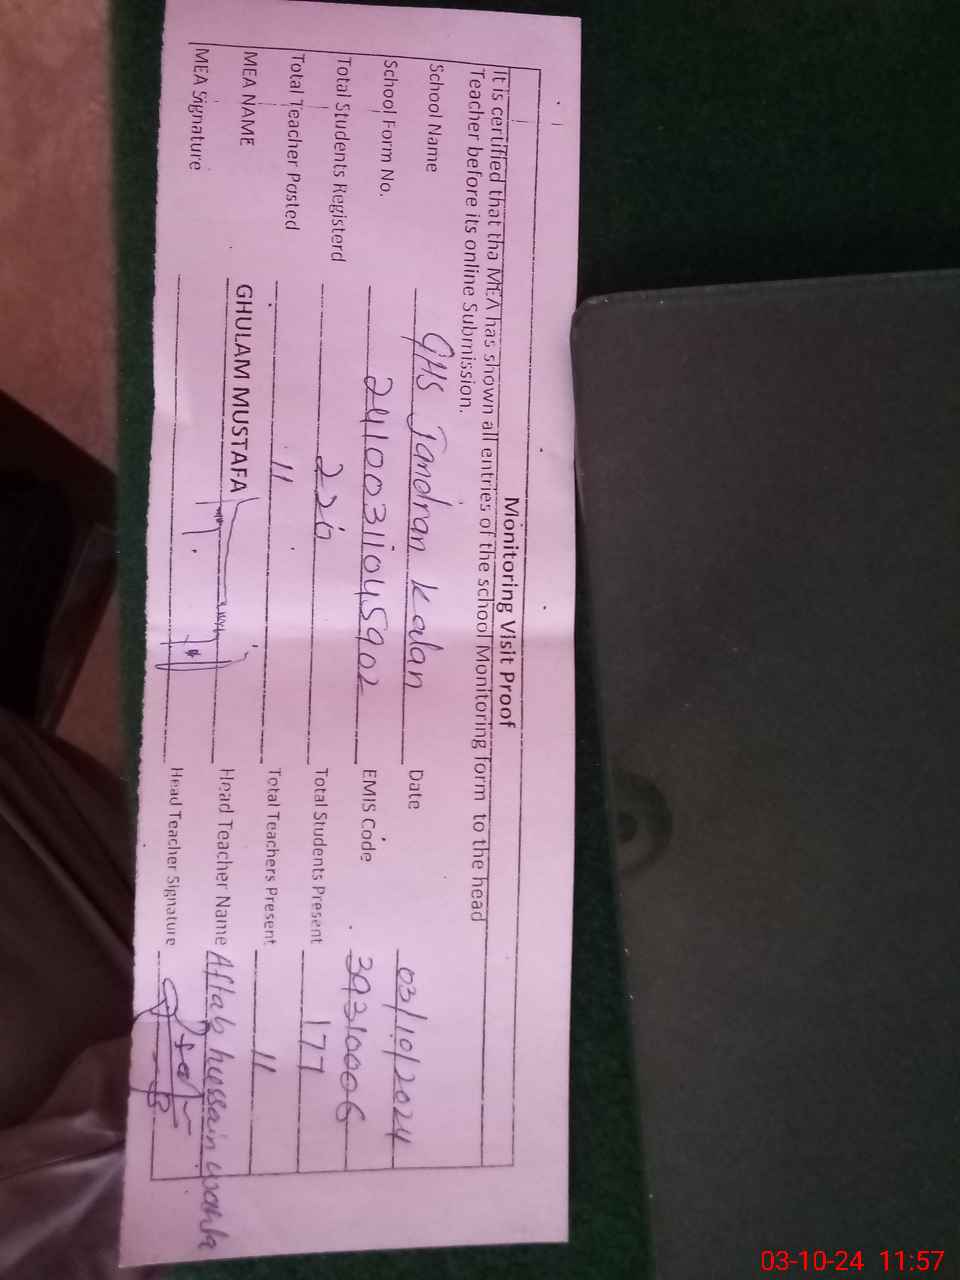 Monitoring Visit Proof
It is certified that tha MEA has shown all entries of the school Monitoring form to the head
Teacher before its online Submission.
School Name GHS Jandran Kalan Date 03/10/2024
School Form No. 24100311045902 EMIS Code 39310006
Total Students Registerd 226 Total Students Present 177
Total Teacher Posted 11 Total Teachers Present 11
MEA NAME GHULAM MUSTAFA Head Teacher Name Aftab hussain
MEA Signature Head Teacher Signature
03-10-24 11:57